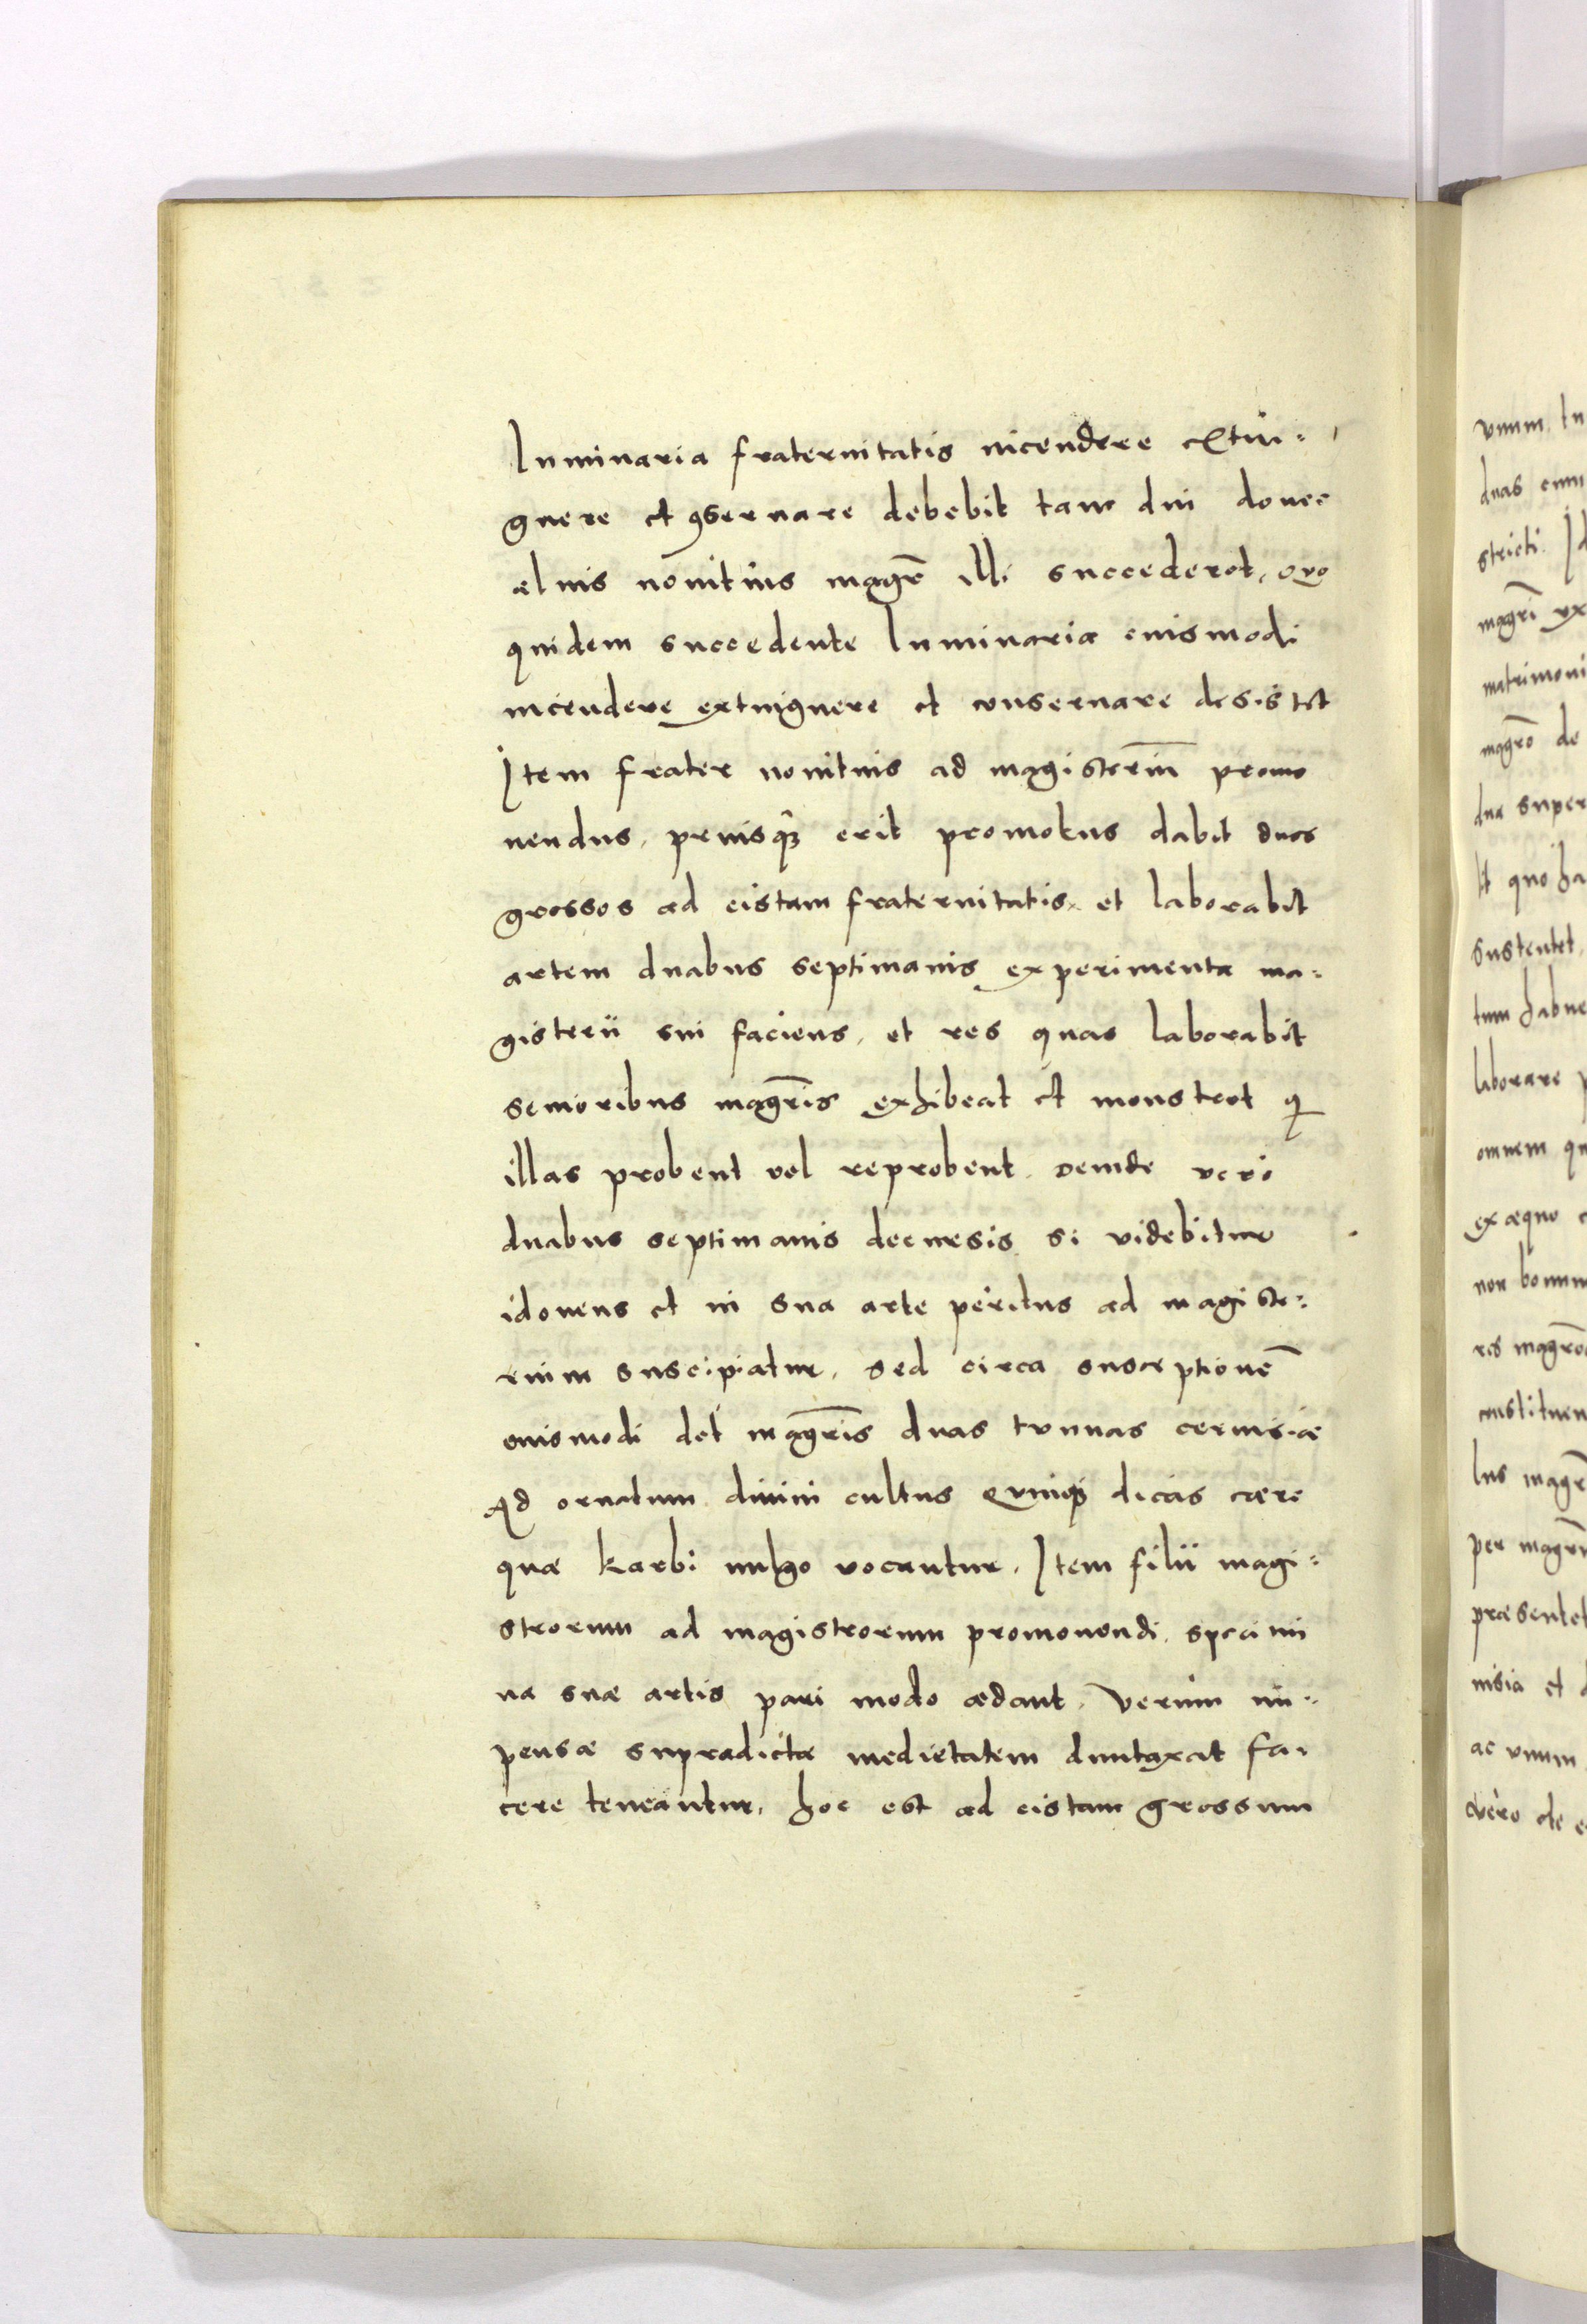 luminaria fraternitatis incendere extin-
guere et ꝯseruare debebit tam diu donec
alius nouitius magr̄ illi succederet, quo
quidem succedente luminaria euismodi
incendere extinguere et conseruare desistet
Item frater nouitius ad magisteriū promo
uendus, priusqȝ erit promotus dabit duos
grossos ad cistam fraternitatis et laborabit
artem duabus septimanis experimenta ma-
gisterii sui faciens, et res quas laborabit
senioribus magr̄is exhibeat et monstret qͥ
illas probent vel reprobent. Deinde vero
duabus septimanis decursis si videbitur
idoneus et in sua arte peritus ad magiste-
rium suscipiatur, sed circa susceptionē
euismodi det magr̄is duas tunnas ceruisiæ
Ad ornatum diuini cultus quinqȝ dicas cære
quæ karbi uulgo vocantur. Item filii magi-
strorum ad magistrorum promouendi, speci mi
na suæ artis pari modo ædant, Verum im-
pensæ supradictæ medietatem duntaxat fa-
cere teneantur, hoc est ad cistam grossum
vnum
duas
stricti. Id
magr̄i ux
matrimoni
magr̄o de
dua super
Et quo ha
sustentet,
tum habue
laborare p
omnem qu
ex æquo c
non bonum
res
constituen
lus magr̄
per
præsentet
uisia et d
ac vnum
vero de e